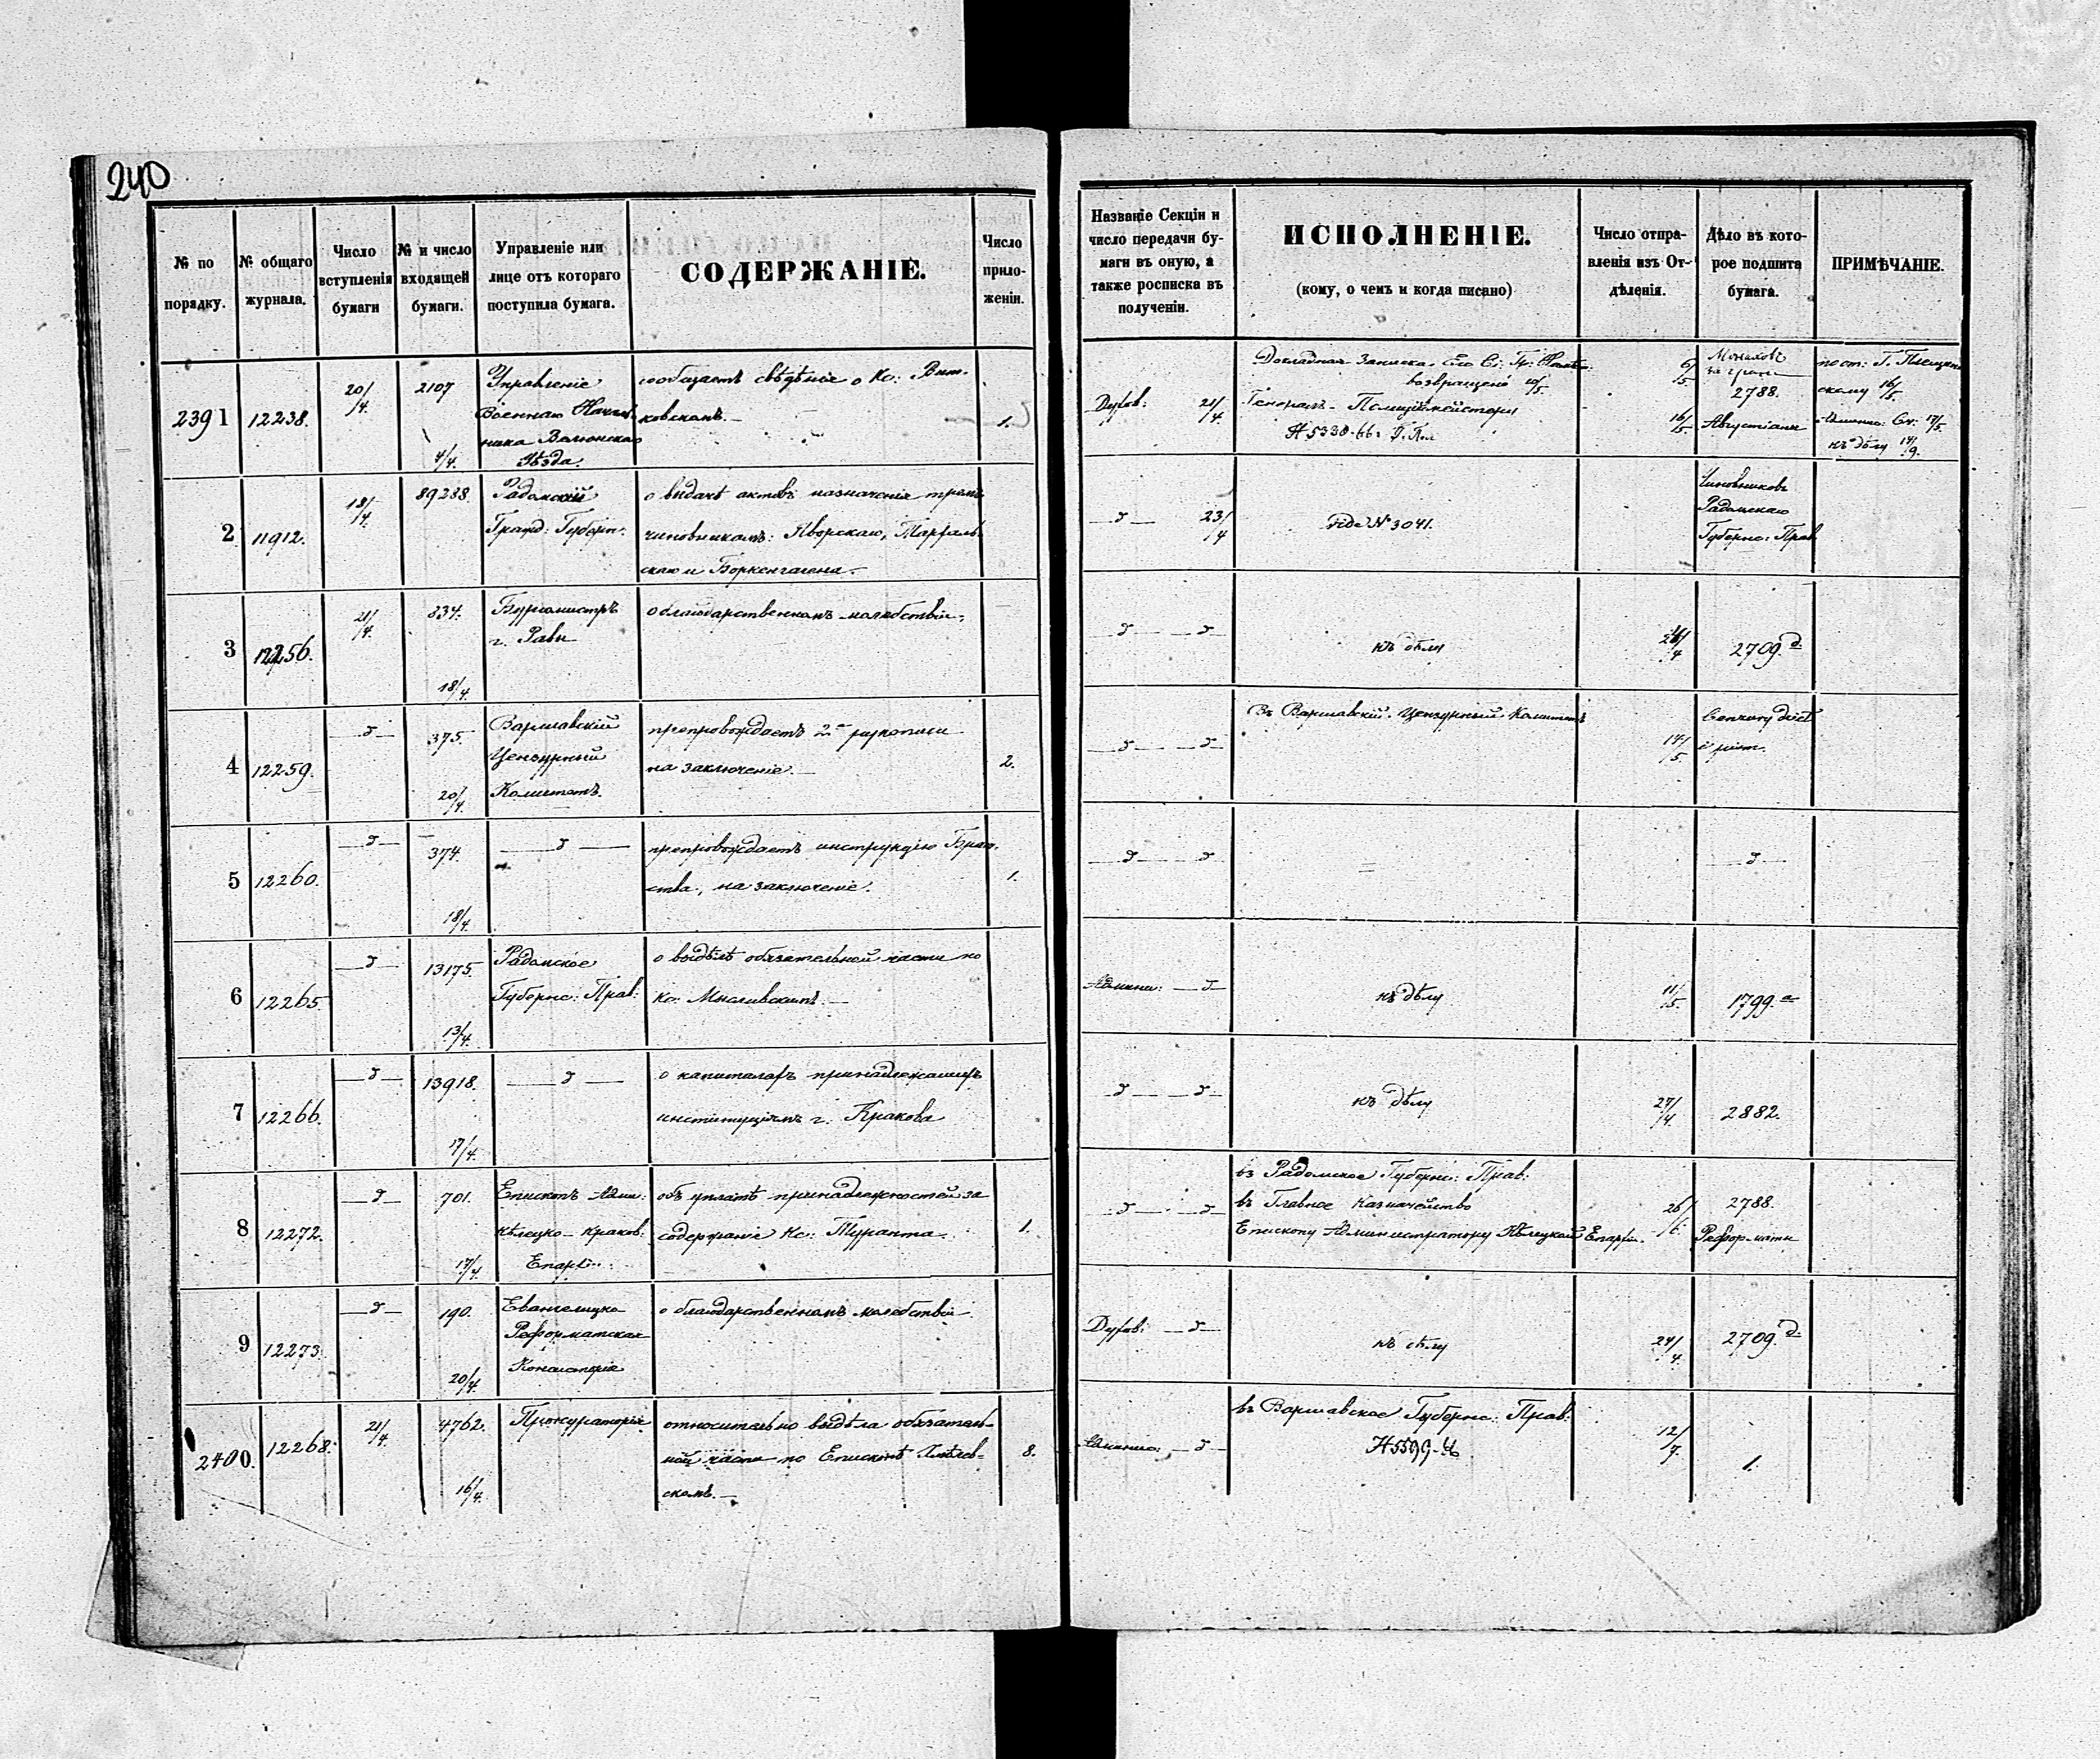 240
№ по порядку.
№ общаго журнала.
Число вступленія бумаги
№ и число входящей бумаги.
Управленіе или лице отъ котораго поступила бумага.
СОДЕРЖАНІЕ.
Число приложеніи.
Названіе Секціи и число передачи бумаги въ оную, а также росписка въ полученіи.
ИСПОЛНЕНІЕ.
(кому, о чемъ и когда писано)
Число отправленія изъ Отдѣленія.
Дѣло въ которое подшита бумага.
ПРИМѢЧАНІЕ.
2391 12238. 20/4. 2107 4/4.
Управленіе
Военнаго Началь
ника Велюнскаго
Уѣзда.
сообщаетъ свѣдѣніе о Кс: Вит
ковскомъ.
1.
Духов: 21/4
Докладная Записка Его Сі: Гр:
возвращено 10/5.
Генералъ-Полиціймейстеру
№ 5338-66
6/5
16/5
Монаховъ
за гран
2788.
Августіаны
скому 16/5
17/5.
къ дѣлу 14/9.
2 11912. 18/4. 89288.
Радомскій
Гражд: Губерн:
о выдачѣ актовъ назначенія тремъ
чиновникамъ: Яворскаго,
скаго и Боркенгагена.
д 23/4
vide № 3041.
Чиновниковъ
Радомскаго
Губернс: Прав
3 12256. 21/4. 834. 18/4.
Бургомистръ
г. Равы
о благодарственномъ молебствіи.
д д
къ дѣлу
/4
2709. д.
4 12259. д 375. 20/4.
Варшавскій
Цензурный
Комитетъ.
препровождаетъ 2 рукописи
на заключеніе.
2.
д д
Въ Варшавскій Цензурный Комитетъ
17/5.
Cenzury dzieł
i pism.
5 12260. д 374. 18/4. д
препровождаетъ инструкцію Брат
ства, на заключеніе.
1.
д д
=
д
6 12265 д 13175. 13/4.
Радомское
Губернс: Прав:
о выдѣлѣ обязательной части по
Кс: Мысливскимъ.
Админи: д
къ дѣлу
11/5.
1799. а
7 12266. д 13918. 17/4. д
о капиталахъ принадлежащихъ
институціямъ г. Кракова
д д
къ дѣлу
27/4.
2882.
8 12272. д 701. 17/4.
Епископъ Адми:
Кѣлецко-Краков:
Епархіи
объ уплатѣ принадлежностей за
содержаніе Кс: Туранта
1.
д д
въ Радомское Губернс: Прав:
въ Главное Казначейство
Епископу Администратору Кѣлецкой Епархіи.
26/6.
2788.
Реформаты
9 12273. д 190. 20/4.
Евангелицко
Реформатская
Консисторія
о благодарственномъ молебствіи
Духов: д
къ дѣлу
24/4.
2709. д.
2400. 12268. 21/4. 4762. 16/4.
Прокураторія
относительно выдѣла обязатель-
ной части по Епископѣ
скомъ.
8.
Админис: д
въ Варшавское Губернс: Прав:
№ 5599-
12/7.
1.